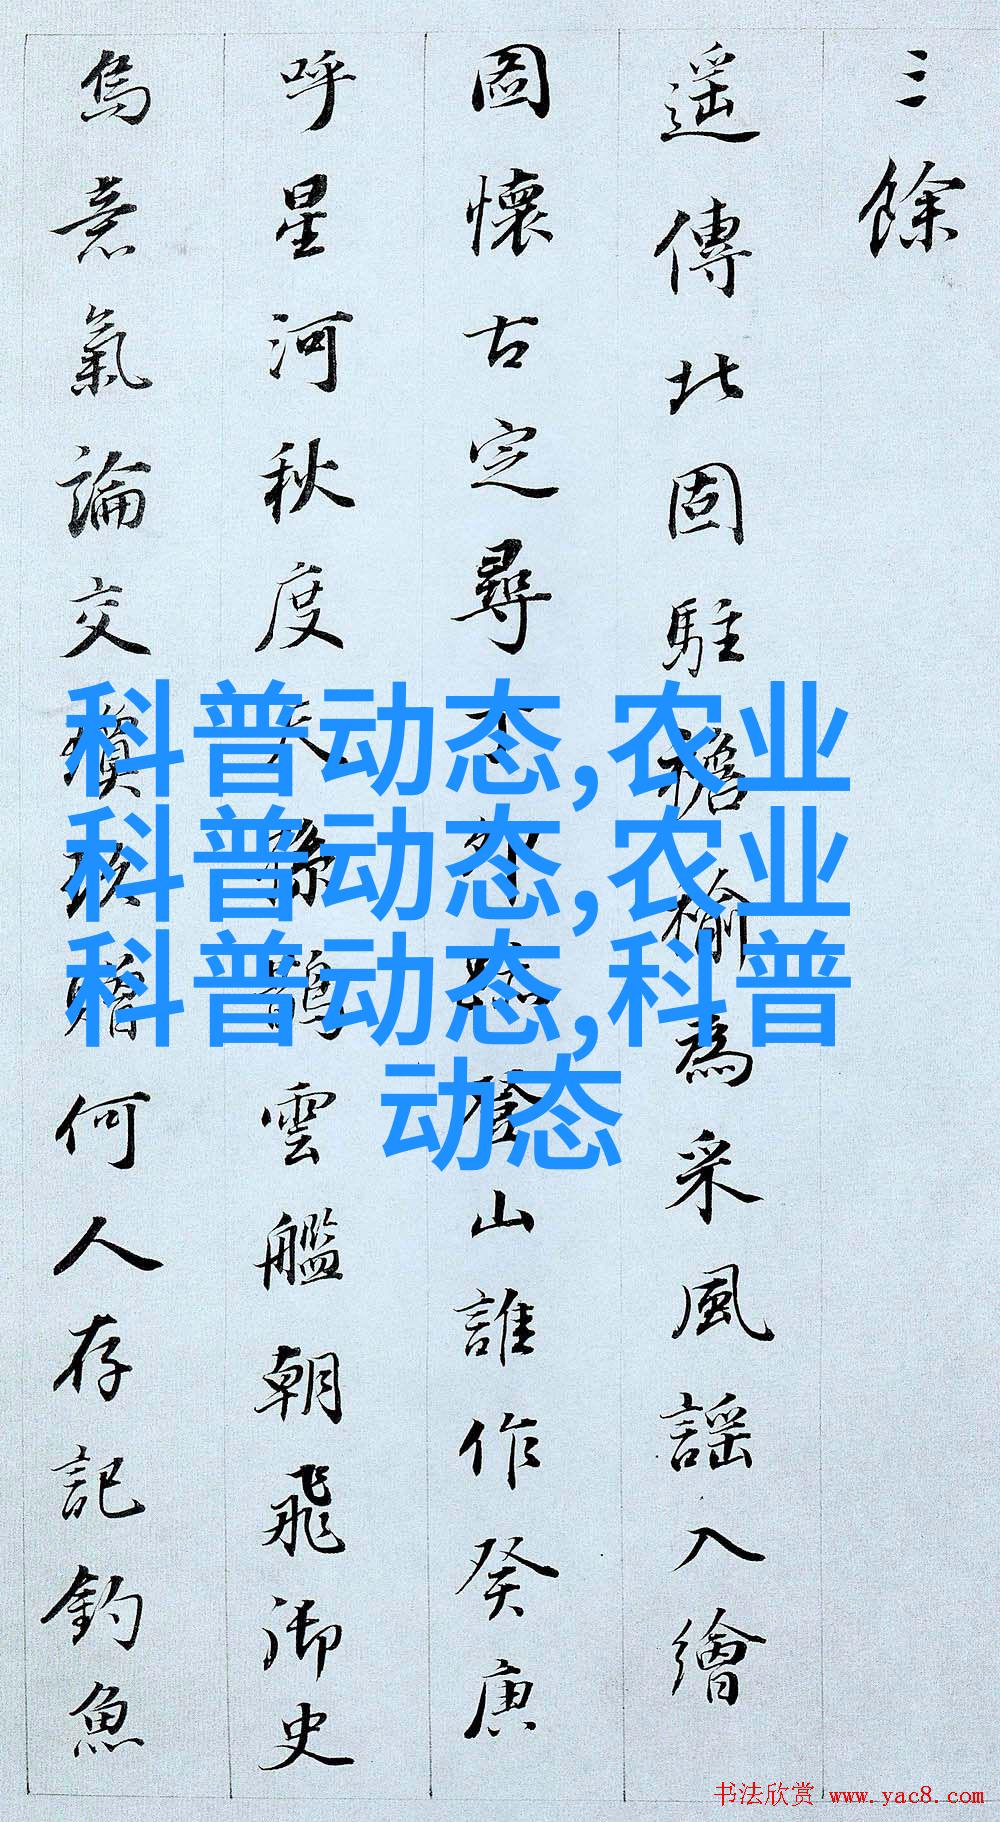 三餘
遥傳北固駐襜榆為采風謡入繪
圖懷古定尋下外山誰作癸庚
呼星河秋度天鵲雲艦朝飛御史
烏意氣論交贈何人存記釣魚
科普动态,农业
科普动态,农业
科普动态,科普
动态
书法欣赏 www.yac8.com